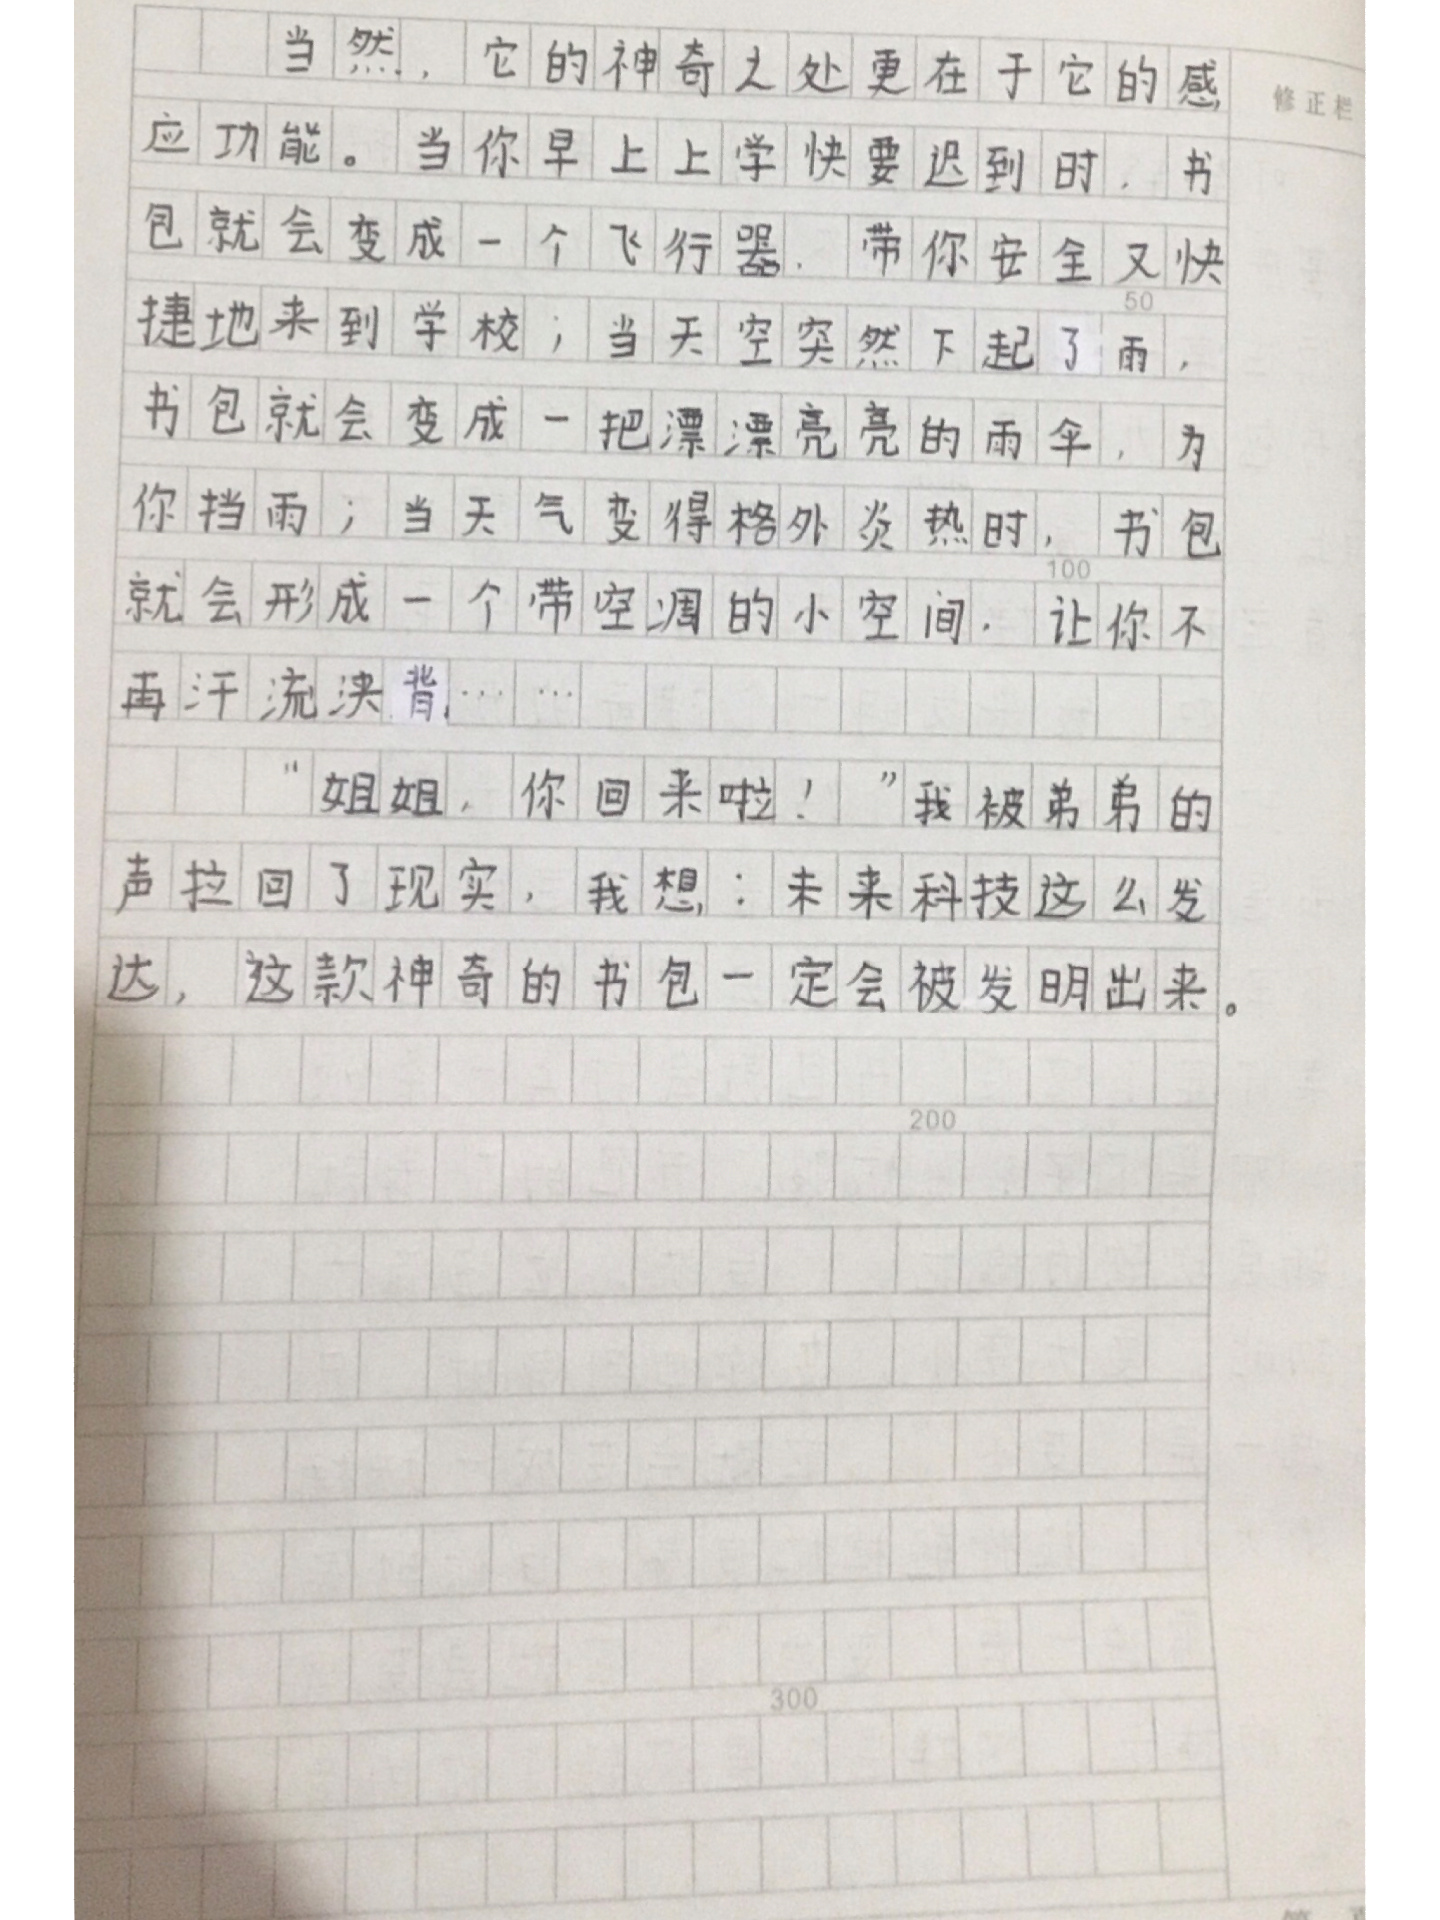 当然，它的神奇之处更在于它的感
修正栏
应功能。当你早上上学快要迟到时，书
包就会变成一个飞行器，带你安全又快
50
捷地来到学校；当天空突然下起了雨，
书包就会变成一把漂漂亮亮的雨伞，为
你挡雨；当天气变得格外炎热时，书包
100
就会形成一个带空调的小空间，让你不
再汗流浃背……
“姐姐，你回来啦！”我被弟弟的
声拉回了现实，我想：未来科技这么发
达，这款神奇的书包一定会被发明出来。
200
300